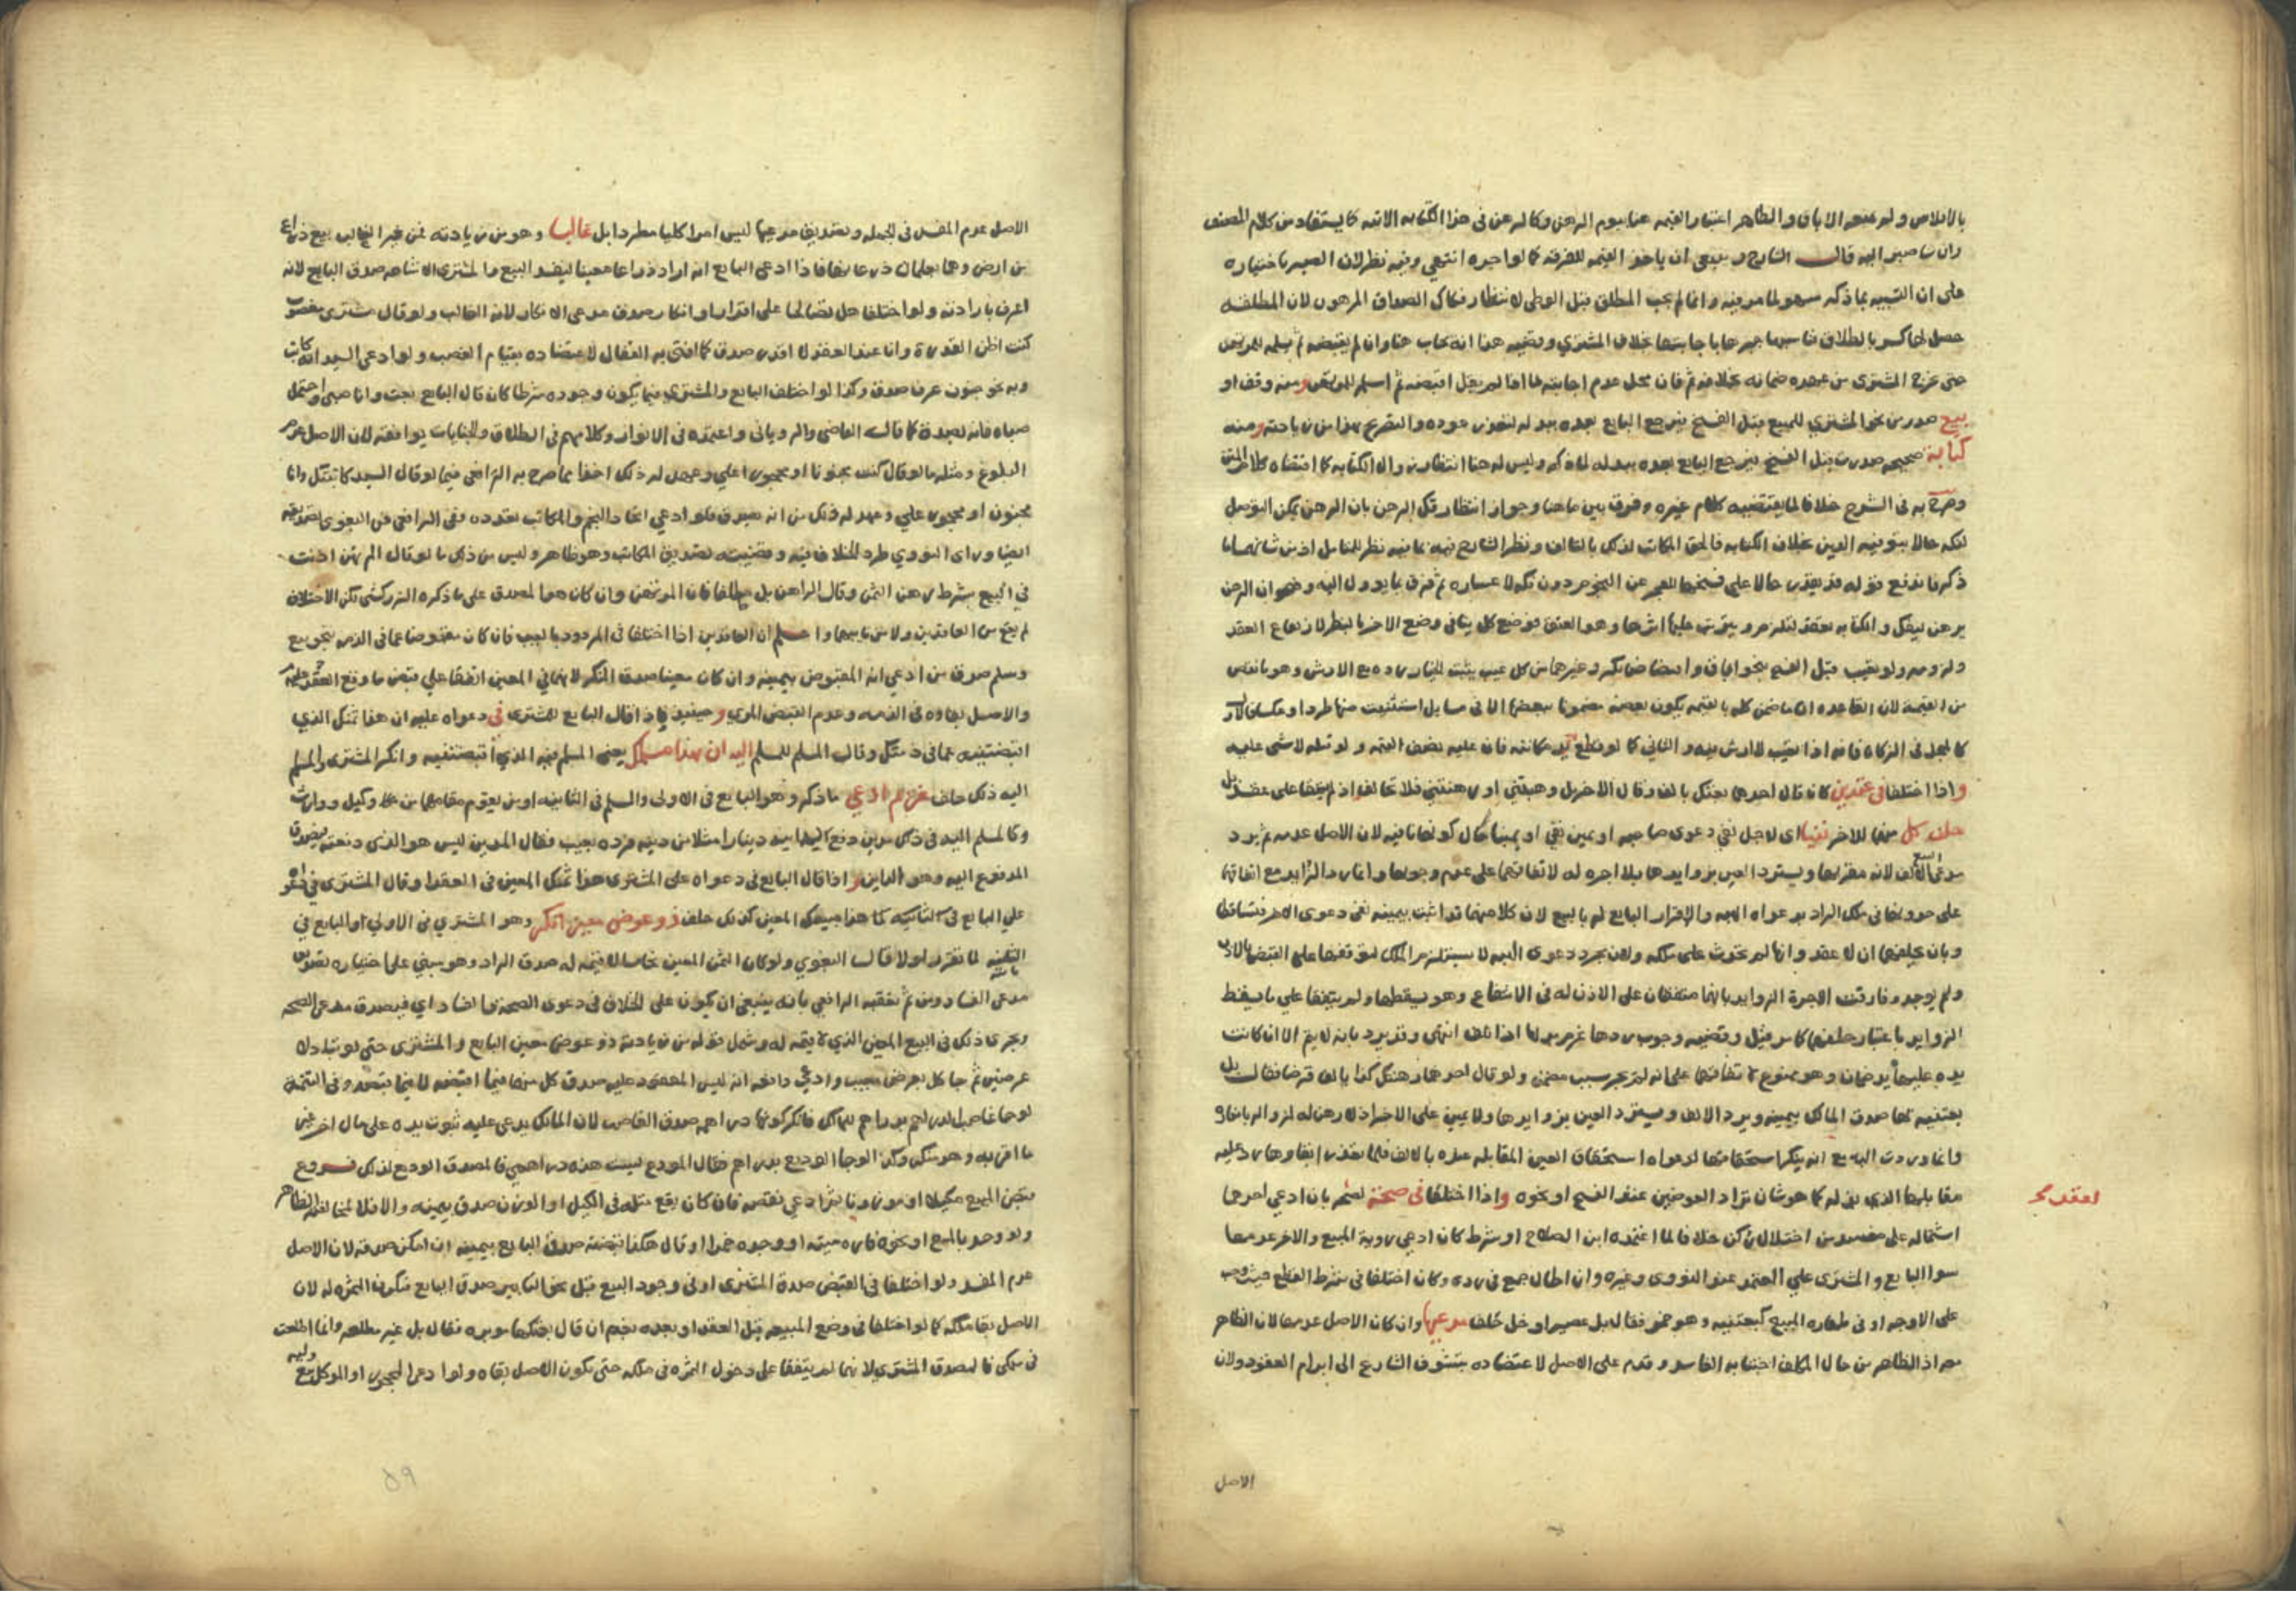 بالافلاس ولم يمنعه الاباق والظاهر اعتبار القيمة هنا يوم الرهن وكالرهن في هذا الكتابه الاتيه كما يستفاد من كلام المصنف
قال الشارح وينبغي ان ياخذ القيمه للفرقه كما لو احبره انتهي وفيه نظر لان الصبر باختياره
على ان التشبيه بما ذكره سهو لما مر فيه وانما لم يجب المطلق قبل الوطي لانتظار فكاك الصداق المرهون لان المطلقه
حصل لها كسر بالطلاق فناسبها جبرها باجابتها بخلاف المشتري وقضيه هذا انه يجاب هنا وان لم يقبضه ثم يسلمه للمرتهن
حتى يخرج المشتري من عهده ضمانه بخلافه ثم فان محل عدم اجابته لها اذا لم يقل اقبضه ثم اسلمه للمرتهن ومنه وقف او
بيع صدر من نحو المشتري للمبيع قبل الفسخ فيرجع البايع بعده ببدله لتعذر عوده والتصريح بهذا من زيادته ومنه
كتابة صحيحه صدرت قبل الفسخ فيرجع البايع بعده ببدله لما ذكر وليس له هنا انتظار زوال الكتابه كما اقتضاه كلام المتن
وصرح به في الشرح خلافا لما يقتضيه كلام غيره وفرق بين ما هنا وجواز انتظار فك الرهن بان الرهن يمكن التوصل
لفكه حالا بتوفيه الدين بخلاف الكتابه فالحق المكاتب لذلك بالتالف ونظر الشارح فيه بما فيه نظر للتامل اذ من شانهما ما
ذكر فاندفع قوله قد يقدر حالا على فسخها للعجز عن النجوم دون فكه لاعساره ثم فرق بما يوول اليه وهو ان الرهن
يرهن ليفك والكتابه تعقد لتلزم ويترتب عليها اثرها وهو العتق فوضع كل ينافي وضع الاخر بالنظر لارتفاع العقد
ولزومه ولو تعيب قبل الفسخ بنحو اباق وافتضاض بكر وغيرهما من كل عيب يثبت الخيار رده مع الارش وهو ما نقص
من القيمة لان القاعده ان ما ضمن كله بالقيمه يكون بعضه مضمونا ببعضها الا في مسايل استثنيت منها طردا وعكسا فالاول
كالمعجل في الزكاه فانه اذا تعيب لا ارش فيه والثاني كما لو قطع يد مكاتبه فان عليه نصف القيمه ولو قتله لا شي عليه
واذا اختلفا في عقدين كان قال احدهما بعتك بالف وقال الاخر بل وهبتني او رهنتني فلا تحالف اذ لم يتفقا على عقد بل
حلف كل منهما للاخر نفيا اي لاجل نفي دعوى صاحبه او يمين نفي او يمينا حال كونه نافيا لان الاصل عدمه ثم يرد
مدعي البيع الالف لانه مقر بها ويسترد العين بزوايدها بلا اجره له لاتفاقهما على عدم وجوبها وانما رد الزايد مع اتفاقهما
على حدوثها في ملك الراد بدعواه الهبه والاقرار البايع له بالبيع لان كلا منهما قد اثبت بيمينه نفي دعوى الاخر فتساقطا
وبان بحلفهما ان لا عقد وانها لم تحدث على ملكه ولان مجرد دعوى الهبه لا يستلزم الملك لتوقفها على القبض بالاذن
ولم يوجد وفارقت الاجرة الزوايد بانهما متفقان على الاذن له في الانتفاع وهو يسقطها ولم يتفقا على ما يسقط
الزوايد باعتبار حلفهما كما مر قيل وقضيه وجوب ردها غرم بدلها اذا تلف انتهى وقد يرد بانه لا يتم الا ان كانت
يده عليها يد ضمان وهو ممنوع لاتفاقهما على انه لم يجر سبب مضمن ولو قال احدهما رهنتك كذا بالف قرضا فقال بل
بعتنيه بها صدق المالك بيمينه ويرد الالف ويسترد العين بزوايدها ولا يمين على الاخر اذ لا رهن له لزواله بانكاره
وانما وردت اليه مع انه ينكر استحقاقها لدعواه استحقاق العين المقابله عنده بالالف فلما تعذر ابقاوها رد عليه
مقابلها الذي بذله كما هو شان تراد العوضين عند الفسخ او نحوه واذا اختلفا في صحته لعقد بان ادعي احدهما
لعقد صح
اشتماله على مفسد من اختلال ركن خلافا لما اعتمده ابن الصلاح او شرط كان ادعي روية المبيع والاخر عدمها
سوا البايع والمشتري علي المعتمد عند النووي وغيره وان اطال جمع في رده وكان اختلفا في شرط القطع حيث وجب
على الاوجه او في طهاره المبيع كبعتنيه وهو خمر فقال بل عصير او خل حلف مدعيها وان كان الاصل عدمها لان الظاهر
معه اذ الظاهر من حال المكلف اجتنابه الفاسد وقدم على الاصل لاعتضاده بتشوف الشارع الى ابرام العقود ولان
الاصل
الاصل عدم المفسد في الجمله وتصديق مدعيها ليس امرا كليا مطردا بل غالبا وهو من زيادته فمن غير الغالب بيع ذراع
من ارض وهما يعلمان ذرعانها فاذا ادعى البايع انه اراد ذراعا معينا ليفسد البيع والمشتري الاشاعه صدق البايع لانه
اعرف بارادته ولو اختلفا هل تصالحا على اقرار او انكار صدق مدعي الانكار لانه الغالب ولو قال مشتري مغصوب
كنت اظن القدرة وانا عند العقد لا اقدر صدق كما افتى به القفال لاعتضاده بقيام الغصب ولو ادعى السيد انه كاتب
وبه نحو جنون عرف صدق وكذا لو اختلف البايع والمشتري فيما يكون وجوده شرطا كان قال البايع بعت وانا صبي واحتمل
صباه فانه يصدق كما قاله القاضي والروياني واعتمده في الانوار وكلامهم في الطلاق والجنايات يوافقه لان الاصل عدم
البلوغ ومثله ما لو قال كنت مجنونا او محجورا علي وعهد له ذلك اخذا مما صرح به الرافعي فيما لو قال السيد كاتبتك وانا
مجنون او محجور علي وعهد له ذلك من انه يصدق فلو ادعي اتحاد النجم والمكاتب تعدده نقل الرافعي عن البغوي تصديقه
ايضا وراى النووي طرد الخلاف فيه وقضيته تصديق المكاتب وهو ظاهر وليس من ذلك ما لو قال المرتهن اذنت
في البيع بشرط رهن الثمن وقال الراهن بل مطلقا فان المرتهن وان كان هو المصدق على ما ذكره الزركشي لكن الاختلاف
لم يقع من العاقدين ولا من نايبهما واعلم ان العاقدين اذا اختلفا في المردود بالعيب فان كان مقبوضا عما في الذمه بنحو بيع
وسلم صدق من ادعي انه المقبوض بيمينه وان كان معينا صدق المنكر لانهما في المعين اتفقا علي قبض ما وقع العقد عليه
والاصل بقاوه في الذمه وعدم القبض المبري وحينئذ فاذا قال البايع للمشتري في دعواه عليه ان هذا ثمنك الذي
اقبضتنيه عما في ذمتك وقال المسلم للمسلم اليه ان هذا مسلمك يعني المسلم فيه الذي اقبضتنيه وانكر المشتري والمسلم
اليه ذلك حلف غريم ادعي ما ذكر وهو البايع في الاولى والمسلم في الثانيه او من يقوم مقامهما من نحو وكيل ووارث
وكالمسلم اليه في ذلك مدين دفع لدائنه دينارا مثلا من دينه فرده بعيب فقال المدين ليس هو الذي دفعته فيصدق
المدفوع اليه وهو الداين واذا قال البايع في دعواه على المشتري هذا ثمنك المعين في العقد او قال المشتري في دعواه
علي البايع في الثانيه هذا مبيعك المعين كذلك حلف ذو عوض معين انكر وهو المشتري في الاولي او البايع في
الثانيه لما تقرر اولا قال البغوي ولو كان الثمن المعين نحاسا لا قيمه له صدق الراد وهو مبني على اختياره تصديق
مدعي الفساد ومن ثم تعقبه الرافعي بانه ينبغي ان يكون على الخلاف في دعوى الصحه والفساد اي فيصدق مدعي الصحه
ويجري ذلك في المبيع المعين الذي لا قيمه له وشمل قوله من زيادته ذو عوض معين البايع والمشتري حتى لو تبادلا
عرضين ثم جا كل بعرض معيب وادعي دافعه انه ليس المعقود عليه صدق كل منهما فيما اقبضه لا فيما قبضه وفي التتمه
لو جا غاصب دراهم بدراهم للمالك فانكر كونها دراهمه صدق الغاصب لان المالك يدعي عليه ثبوت يده على مال اخر غير
ما اقر به وهو منكر وكذا لو جا الوديع بدراهم فقال المودع ليست هذه دراهمي فالمصدق الوديع لذلك فروع
قبض المبيع مكيلا او موزونا ثم ادعي نقصه فان كان يقع مثله في الكيل او الوزن صدق بيمينه والا فلا لمخالفته الظاهر
ولو وجد بالمبيع او نحوه فاره ميته او وجده خمرا وقال هكذا قبضته صدق البايع بيمينه ان امكن صدقه لان الاصل
عدم المفسد ولو اختلفا في القبض صدق المشتري او في وجود البيع قبل نحو التابير صدق البايع فتكون الثمره له لان
الاصل بقا ملكه كما لو اختلفا في وضع المبيعه قبل العقد او بعده نعم ان قال بعتكها موبره فقال بل غير مطلعه وانما اطلعت
في ملكي فالمصدق المشتري لانهما لم يتفقا على دخول الثمره في ملكه حتى يكون الاصل بقاه ولو ادعى المحجور او الموكل بيع وليه
٥٩